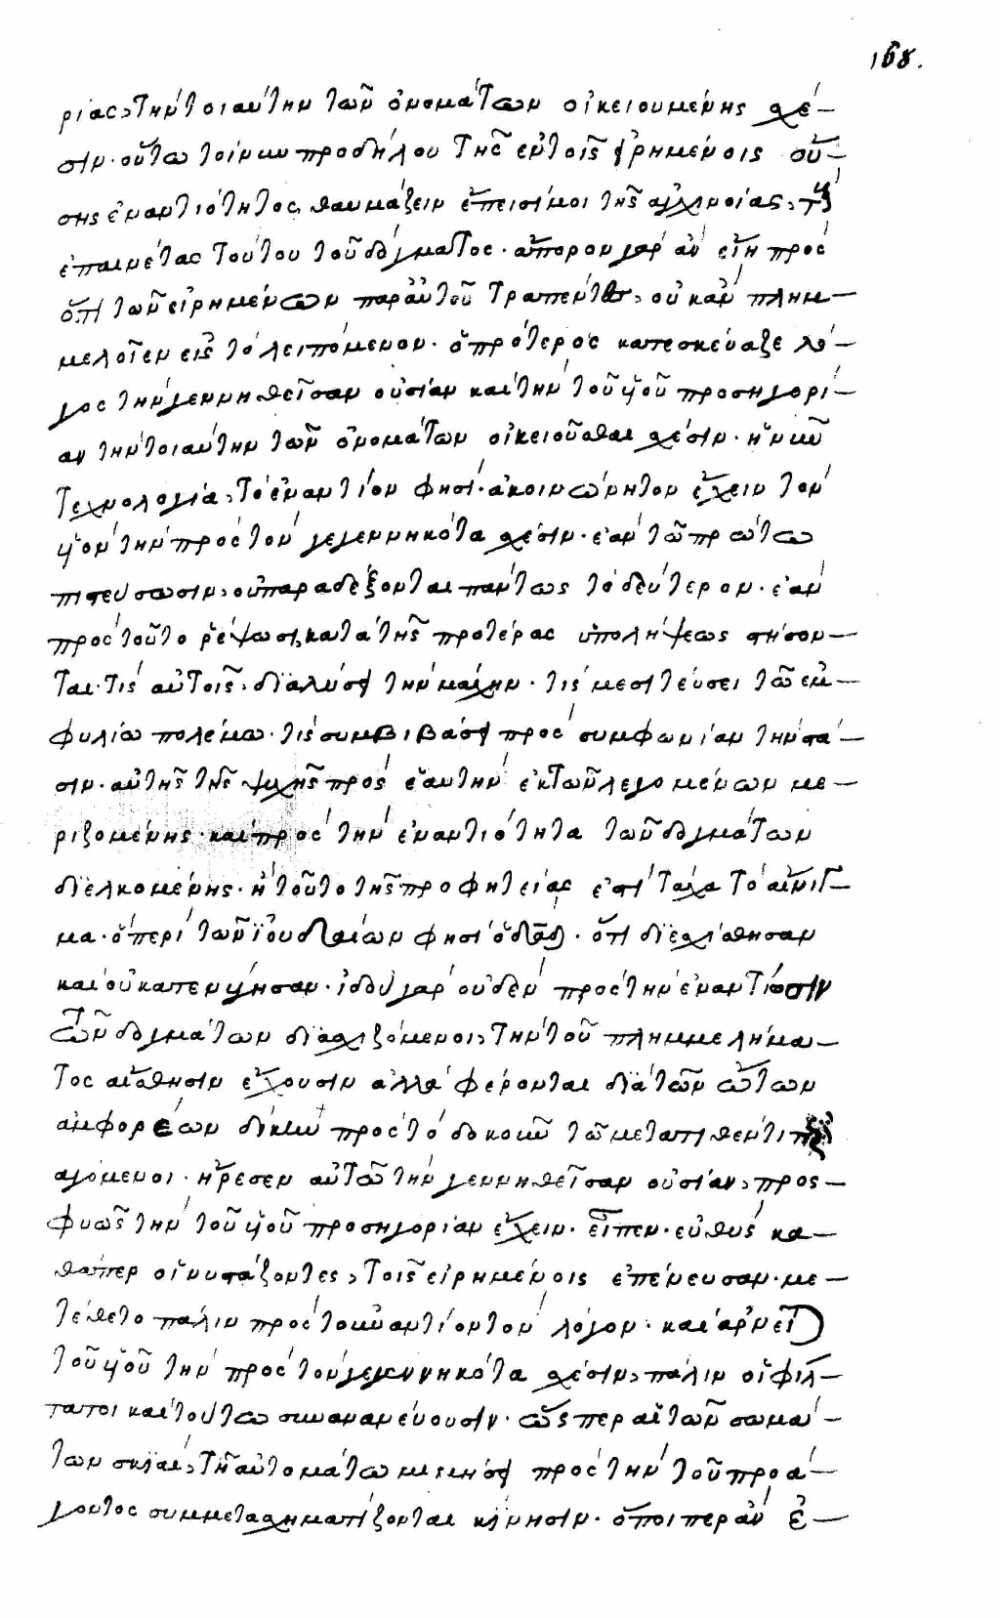 168.
ρίας, τὴν τοιαύτην τῶν ὀνομάτων οἰκειουμένης σχέ-
σιν. οὕτω τοίνυν προδήλου τῆς ἐν τοῖς εἰρημένοις οὔ-
σης ἐναντιότητος, θαυμάζειν ἔπεισί μοι τῆς ἀγχινοίας, τοὺς
ἐπαινέτας τούτου τοῦ δόγματος. ἄπορον γὰρ ἂν εἴη πρὸς
ὅ,τι τῶν εἰρημένων παρ' αὐτοῦ τραπέντες, οὐκ ἂν πλημ-
μελοῖεν εἰς τὸ λειπόμενον. ὁ πρότερος κατεσκεύαζε λό-
γος τὴν γεννηθεῖσαν οὐσίαν καὶ τὴν τοῦ υἱοῦ προσηγορί-
αν τὴν τοιαύτην τῶν ὀνομάτων οἰκειοῦσθαι σχέσιν. ἡ νῦν
τεχνολογία, τὸ ἐναντίον φησί. ἀκοινώνητον ἔχειν τὸν
υἱὸν τὴν πρὸς τὸν γεγεννηκότα σχέσιν. ἐὰν τῷ πρώτω
πιστεύσωσιν, οὐ παραδέξονται πάντως τὸ δεύτερον. ἐὰν
πρὸς τοῦτο ῥέψωσι, κατὰ τῆς προτέρας ὑπολήψεως στήσον-
ται. τίς αὐτοῖς διαλύσει τὴν μάχην. τίς μεσιτεύσει τῶ ἐμ-
φυλίω πολέμω. τίς συμβιβάσει πρὸς συμφωνίαν τὴν στά-
σιν. αὐτῆς τῆς ψυχῆς πρὸς ἑαυτὴν ἐκ τῶν λεγομένων με-
ριζομένης. καὶ πρὸς τὴν ἐναντιότητα τῶν δογμάτων
διελκομένης. ἢ τοῦτο τῆς προφητείας ἐστὶ τάχα τὸ αἴνιγ-
μα. ὃ περὶ τῶν ἰουδαίων φησὶ ὁ δαδ. ὅτι διεσχίσθησαν
καὶ οὐ κατενύγησαν. ἰδοὺ γὰρ οὐδὲν πρὸς τὴν ἐναντίωσιν
τῶν δογμάτων διασχιζόμενοι, τὴν τοῦ πλημμελήμα-
τος αἴσθησιν ἔχουσιν ἀλλὰ φέρονται διὰ τῶν ὤτων
ἀμφορέων δίκην πρὸς τὸ δοκοῦν τῶ μετατιθέντι περι
αγόμενοι. ἤρεσεν αὐτῶ τὴν γεννηθεῖσαν οὐσίαν, προσ-
φυῶς τὴν τοῦ υἱοῦ προσηγορίαν ἔχειν. εἶπεν. εὐθὺς κα-
θάπερ οἱ νυστάζοντες, τοῖς εἰρημένοις ἐπένευσαν. με-
τέθετο πάλιν πρὸς τοὐναντίον τὸν λόγον. καὶ ἀρνεῖται
τοῦ υἱοῦ τὴν πρὸς τὸν γεγεννηκότα σχέσιν, πάλιν οἱ φίλ-
τατοι καὶ τούτω συνανανεύουσιν. ὥσπερ αἱ τῶν σωμά-
των σκιαί, τῆ αὐτομάτω μιμήσει πρὸς τὴν τοῦ προά-
γοντος συμμετασχηματίζονται κίνησιν. ὅποιπερ ἂν ἐ-